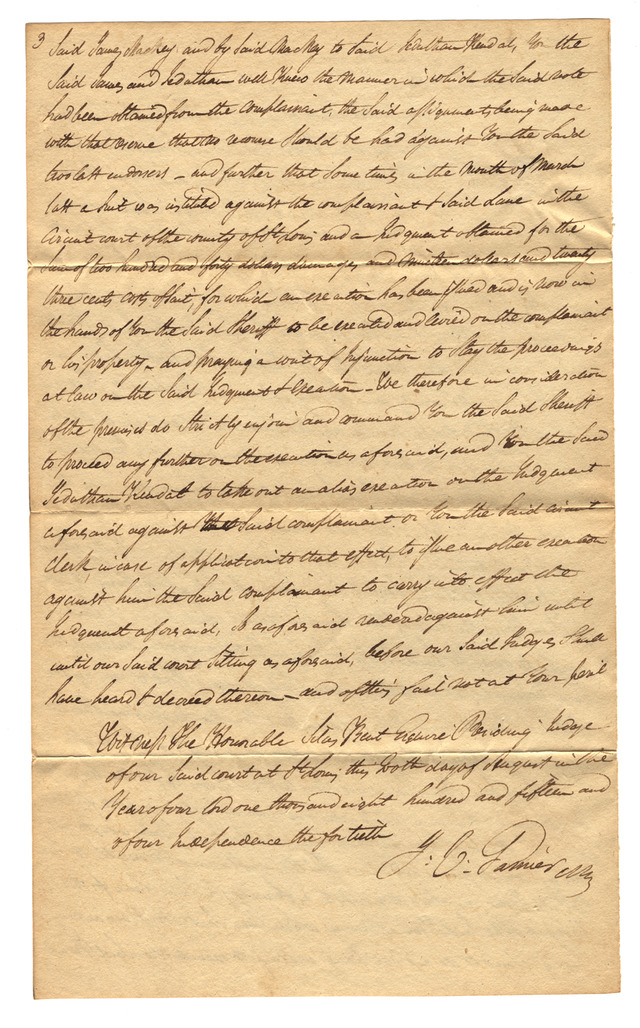 3 Said James Mackey and by Said Mackey to Said Jeduthan Kendal, You the
Said James and Jeduthan well knew the manner in which the Said note
had been obtained from the complainant, the Said assignments being made
with that reserve that no recourse Should be had against You the Said
two last endorsers – and further that Some time in the month of March
last a Suit was instituted against the complainant & Said Lane in the
Circuit court of the county of St Louis and a Judgment obtained for the
Sum of two hundred and forty dollars damages and Nineteen dollars and twenty
three cents costs of Suit, for which an execution has been issued and is now in
the hands of You the Said Sheriff to be executed and levied on the complainant
or his property – and praying a writ of Injunction to Stay the proceedings
at law on the Said Judgment & Execution – We therefore in consideration
of the premises do Strictly enjoin and command You the Said Sheriff
to proceed any further on the execution as aforesaid, and You the Said
Jeduthan Kendal to take out an alias execution on the Judgment
aforesaid against Said complainant or You the Said circuit
clerk, in case of application to that effect, to issue another execution
against him the Said complainant to carry into effect the
Judgment aforesaid, So as aforesaid rendered against him until
until our Said court Sitting as aforesaid, before our Said Judges Shall
have heard & decreed thereon – and of this fail not at Your peril
Witness the Honorable Silas Bent Esquire Presiding Judge
of our Said court at St Louis this day of August in the
Year of our Lord one thousand eight hundred and fifteen and
of our Independence the fortieth